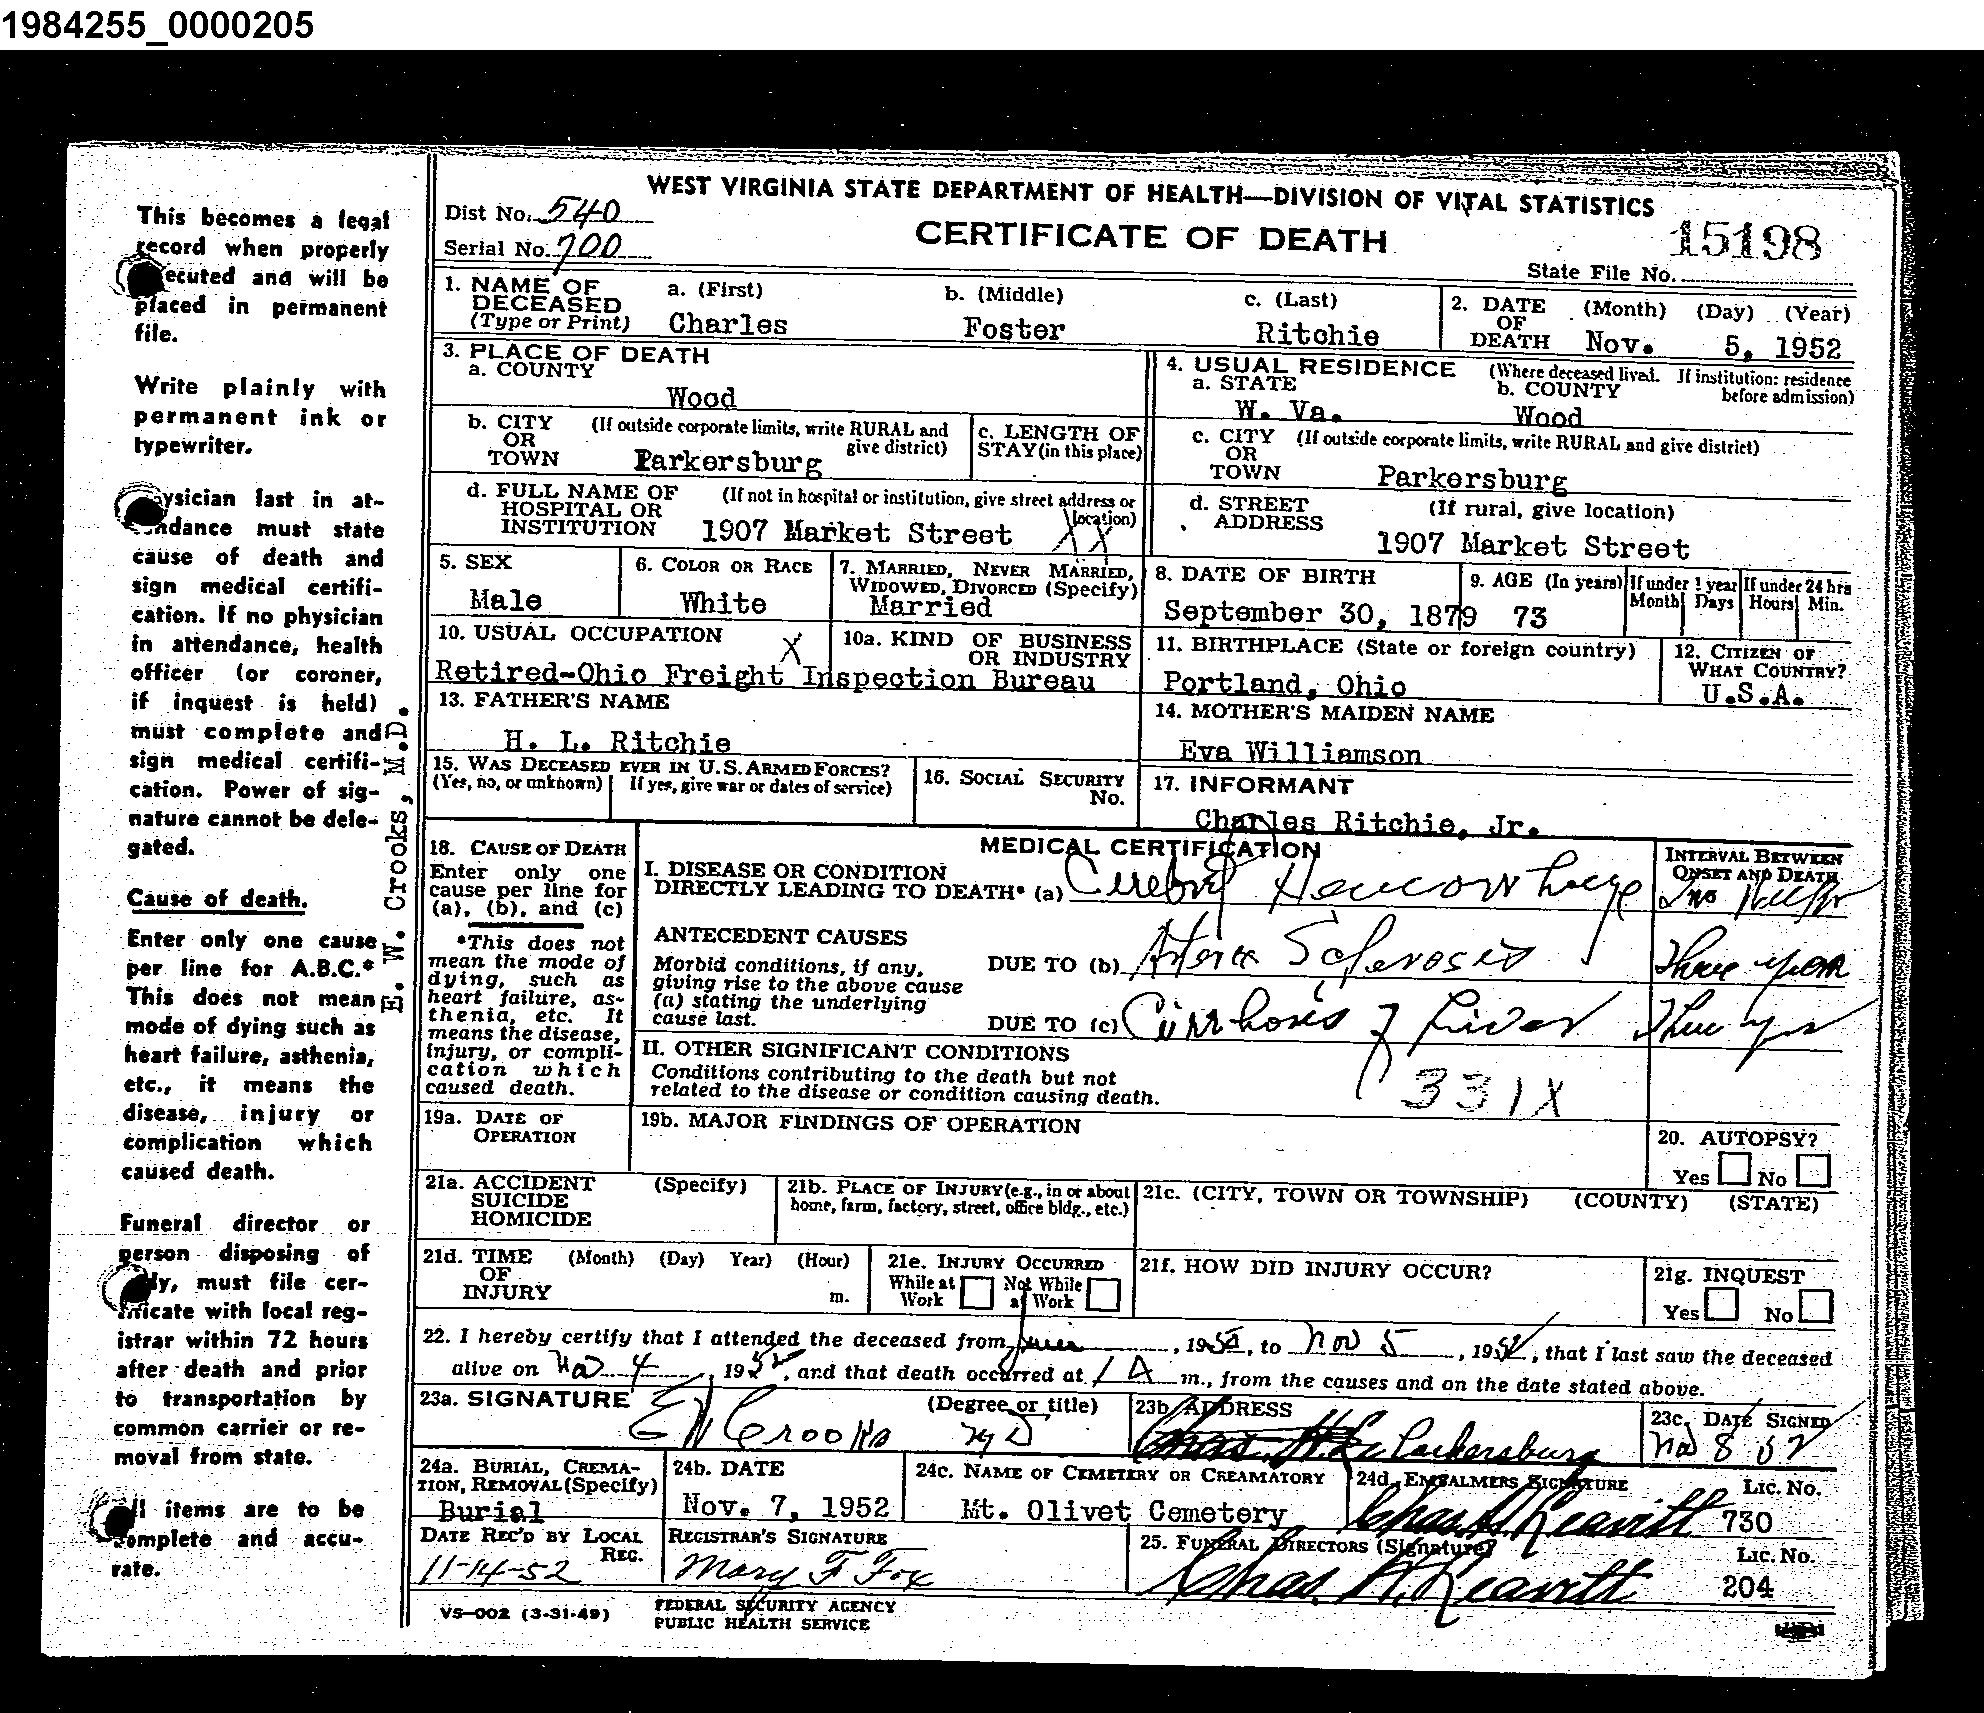 1984255_0000205
WEST VIRGINIA STATE DEPARTMENT OF HEALTH—DIVISION OF VITAL STATISTICS
CERTIFICATE OF DEATH
Dist No. 540
Serial No. 700
15198
State File No.
1. NAME OF DECEASED (Type or Print) a. (First) Charles b. (Middle) Foster c. (Last) Ritchie
2. DATE OF DEATH (Month) (Day) (Year) Nov. 5, 1952
3. PLACE OF DEATH
a. COUNTY Wood
b. CITY OR TOWN (If outside corporate limits, write RURAL and give district) Parkersburg
c. LENGTH OF STAY (in this place)
d. FULL NAME OF HOSPITAL OR INSTITUTION (If not in hospital or institution, give street address or location) 1907 Market Street XX
4. USUAL RESIDENCE (Where deceased lived. If institution: residence before admission)
a. STATE W. Va. b. COUNTY Wood
c. CITY OR TOWN (If outside corporate limits, write RURAL and give district) Parkersburg
d. STREET ADDRESS (If rural, give location) 1907 Market Street
5. SEX Male
6. COLOR OR RACE White
7. MARRIED, NEVER MARRIED, WIDOWED, DIVORCED (Specify) Married
8. DATE OF BIRTH September 30, 1879
9. AGE (In years) 73 If under 1 year Month Days If under 24 hrs Hours Min.
10. USUAL OCCUPATION X 10a. KIND OF BUSINESS OR INDUSTRY
Retired-Ohio Freight Inspection Bureau
11. BIRTHPLACE (State or foreign country) Portland, Ohio
12. CITIZEN OF WHAT COUNTRY? U.S.A.
13. FATHER'S NAME H. L. Ritchie
14. MOTHER'S MAIDEN NAME Eva Williamson
15. WAS DECEASED EVER IN U.S. ARMED FORCES? (Yes, no, or unknown) If yes, give war or dates of service)
16. SOCIAL SECURITY No.
17. INFORMANT Charles Ritchie, Jr.
MEDICAL CERTIFICATION
18. CAUSE OF DEATH
Enter only one cause per line for (a), (b), and (c)
*This does not mean the mode of dying, such as heart failure, asthenia, etc. It means the disease, injury, or complication which caused death.
I. DISEASE OR CONDITION DIRECTLY LEADING TO DEATH* (a) Cerebral Hemorrhage
INTERVAL BETWEEN ONSET AND DEATH
ANTECEDENT CAUSES
Morbid conditions, if any, giving rise to the above cause (a) stating the underlying cause last.
DUE TO (b) Arterio Sclerosis Three years
DUE TO (c) Cirrhosis of Liver Three yrs
II. OTHER SIGNIFICANT CONDITIONS
Conditions contributing to the death but not related to the disease or condition causing death.
331X
19a. DATE OF OPERATION
19b. MAJOR FINDINGS OF OPERATION
20. AUTOPSY? Yes No
21a. ACCIDENT SUICIDE HOMICIDE (Specify)
21b. PLACE OF INJURY (e.g., in or about home, farm, factory, street, office bldg., etc.)
21c. (CITY, TOWN OR TOWNSHIP) (COUNTY) (STATE)
21d. TIME OF INJURY (Month) (Day) Year) (Hour) m.
21e. INJURY OCCURRED While at Work Not While at Work
21f. HOW DID INJURY OCCUR?
21g. INQUEST Yes No
22. I hereby certify that I attended the deceased from June, 1952, to Nov 5, 1952, that I last saw the deceased
alive on Nov 4, 1952, and that death occurred at 1 A m., from the causes and on the date stated above.
23a. SIGNATURE EW Crooks (Degree or title) MD
23b. ADDRESS Parkersburg
23c. DATE SIGNED Nov 8 52
24a. BURIAL, CREMATION, REMOVAL (Specify) Burial
24b. DATE Nov. 7, 1952
24c. NAME OF CEMETERY OR CREAMATORY Mt. Olivet Cemetery
24d. EMBALMERS SIGNATURE Chas. H. Leavitt LIC. NO. 730
DATE REC'D BY LOCAL REG. 11-14-52
REGISTRAR'S SIGNATURE Mary F Fox
25. FUNERAL DIRECTORS (Signature) Chas. H. Leavitt LIC. NO. 204
VS-002 (3-31-49)
FEDERAL SECURITY AGENCY
PUBLIC HEALTH SERVICE
This becomes a legal
record when properly
ecuted and will be
placed in permanent
file.
Write plainly with
permanent ink or
typewriter.
ysician last in at-
ndance must state
cause of death and
sign medical certifi-
cation. If no physician
in attendance, health
officer (or coroner,
if inquest is held)
must complete and
sign medical certifi-
cation. Power of sig-
nature cannot be dele-
gated.
Cause of death.
Enter only one cause
per line for A.B.C.*
This does not mean
mode of dying such as
heart failure, asthenia,
etc., it means the
disease, injury or
complication which
caused death.
Funeral director or
person disposing of
dy, must file cer-
tificate with local reg-
istrar within 72 hours
after death and prior
to transportation by
common carrier or re-
moval from state.
ll items are to be
complete and accu-
rate.
E. W. Crooks, M.D.